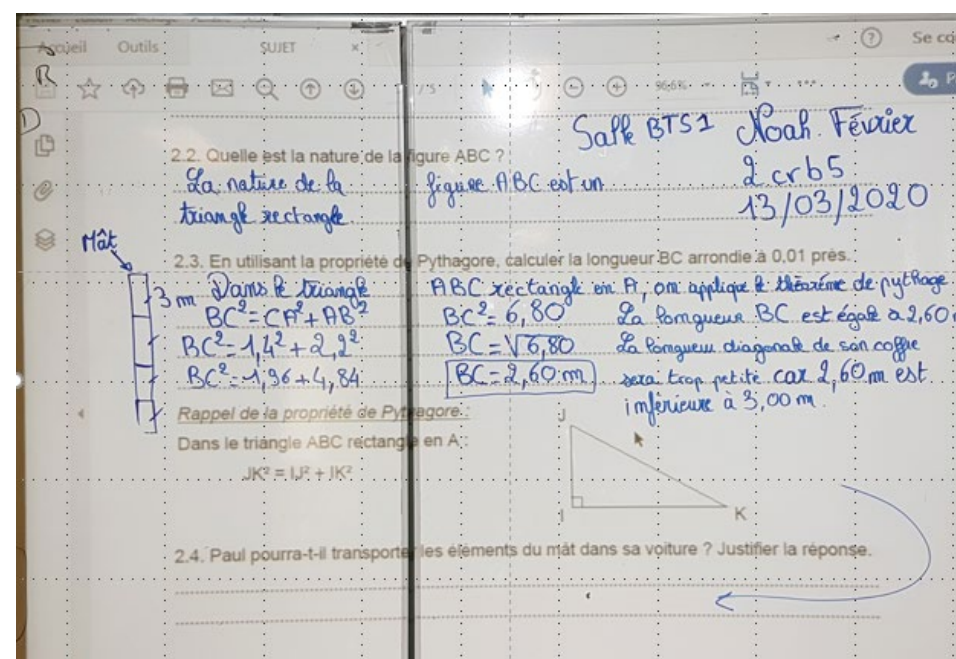 Accueil Outils SUJET × ? Se co
/ 5 96,6%
R
1
Salle BTS1 Noah Février
2crb5
13/03/2020
2.2. Quelle est la nature de la figure ABC ?
La nature de la figure ABC est un
triangle rectangle
2.3. En utilisant la propriété de Pythagore, calculer la longueur BC arrondie à 0,01 près.
Mât
3 m
Dans le triangle ABC rectangle en A, on applique le théorème de pythage
BC² = CA² + AB² BC² = 6,80 La longueur BC est égale à 2,60
BC² = 1,4² + 2,2² BC = √6,80 La longueur diagonale de son coffre
BC² = 1,96 + 4,84 BC = 2,60 m sera trop petite car 2,60 m est
inférieure à 3,00 m
Rappel de la propriété de Pythagore :
Dans le triangle ABC rectangle en A :
JK² = IJ² + IK²
J
I K
2.4. Paul pourra-t-il transporter les éléments du mât dans sa voiture ? Justifier la réponse.